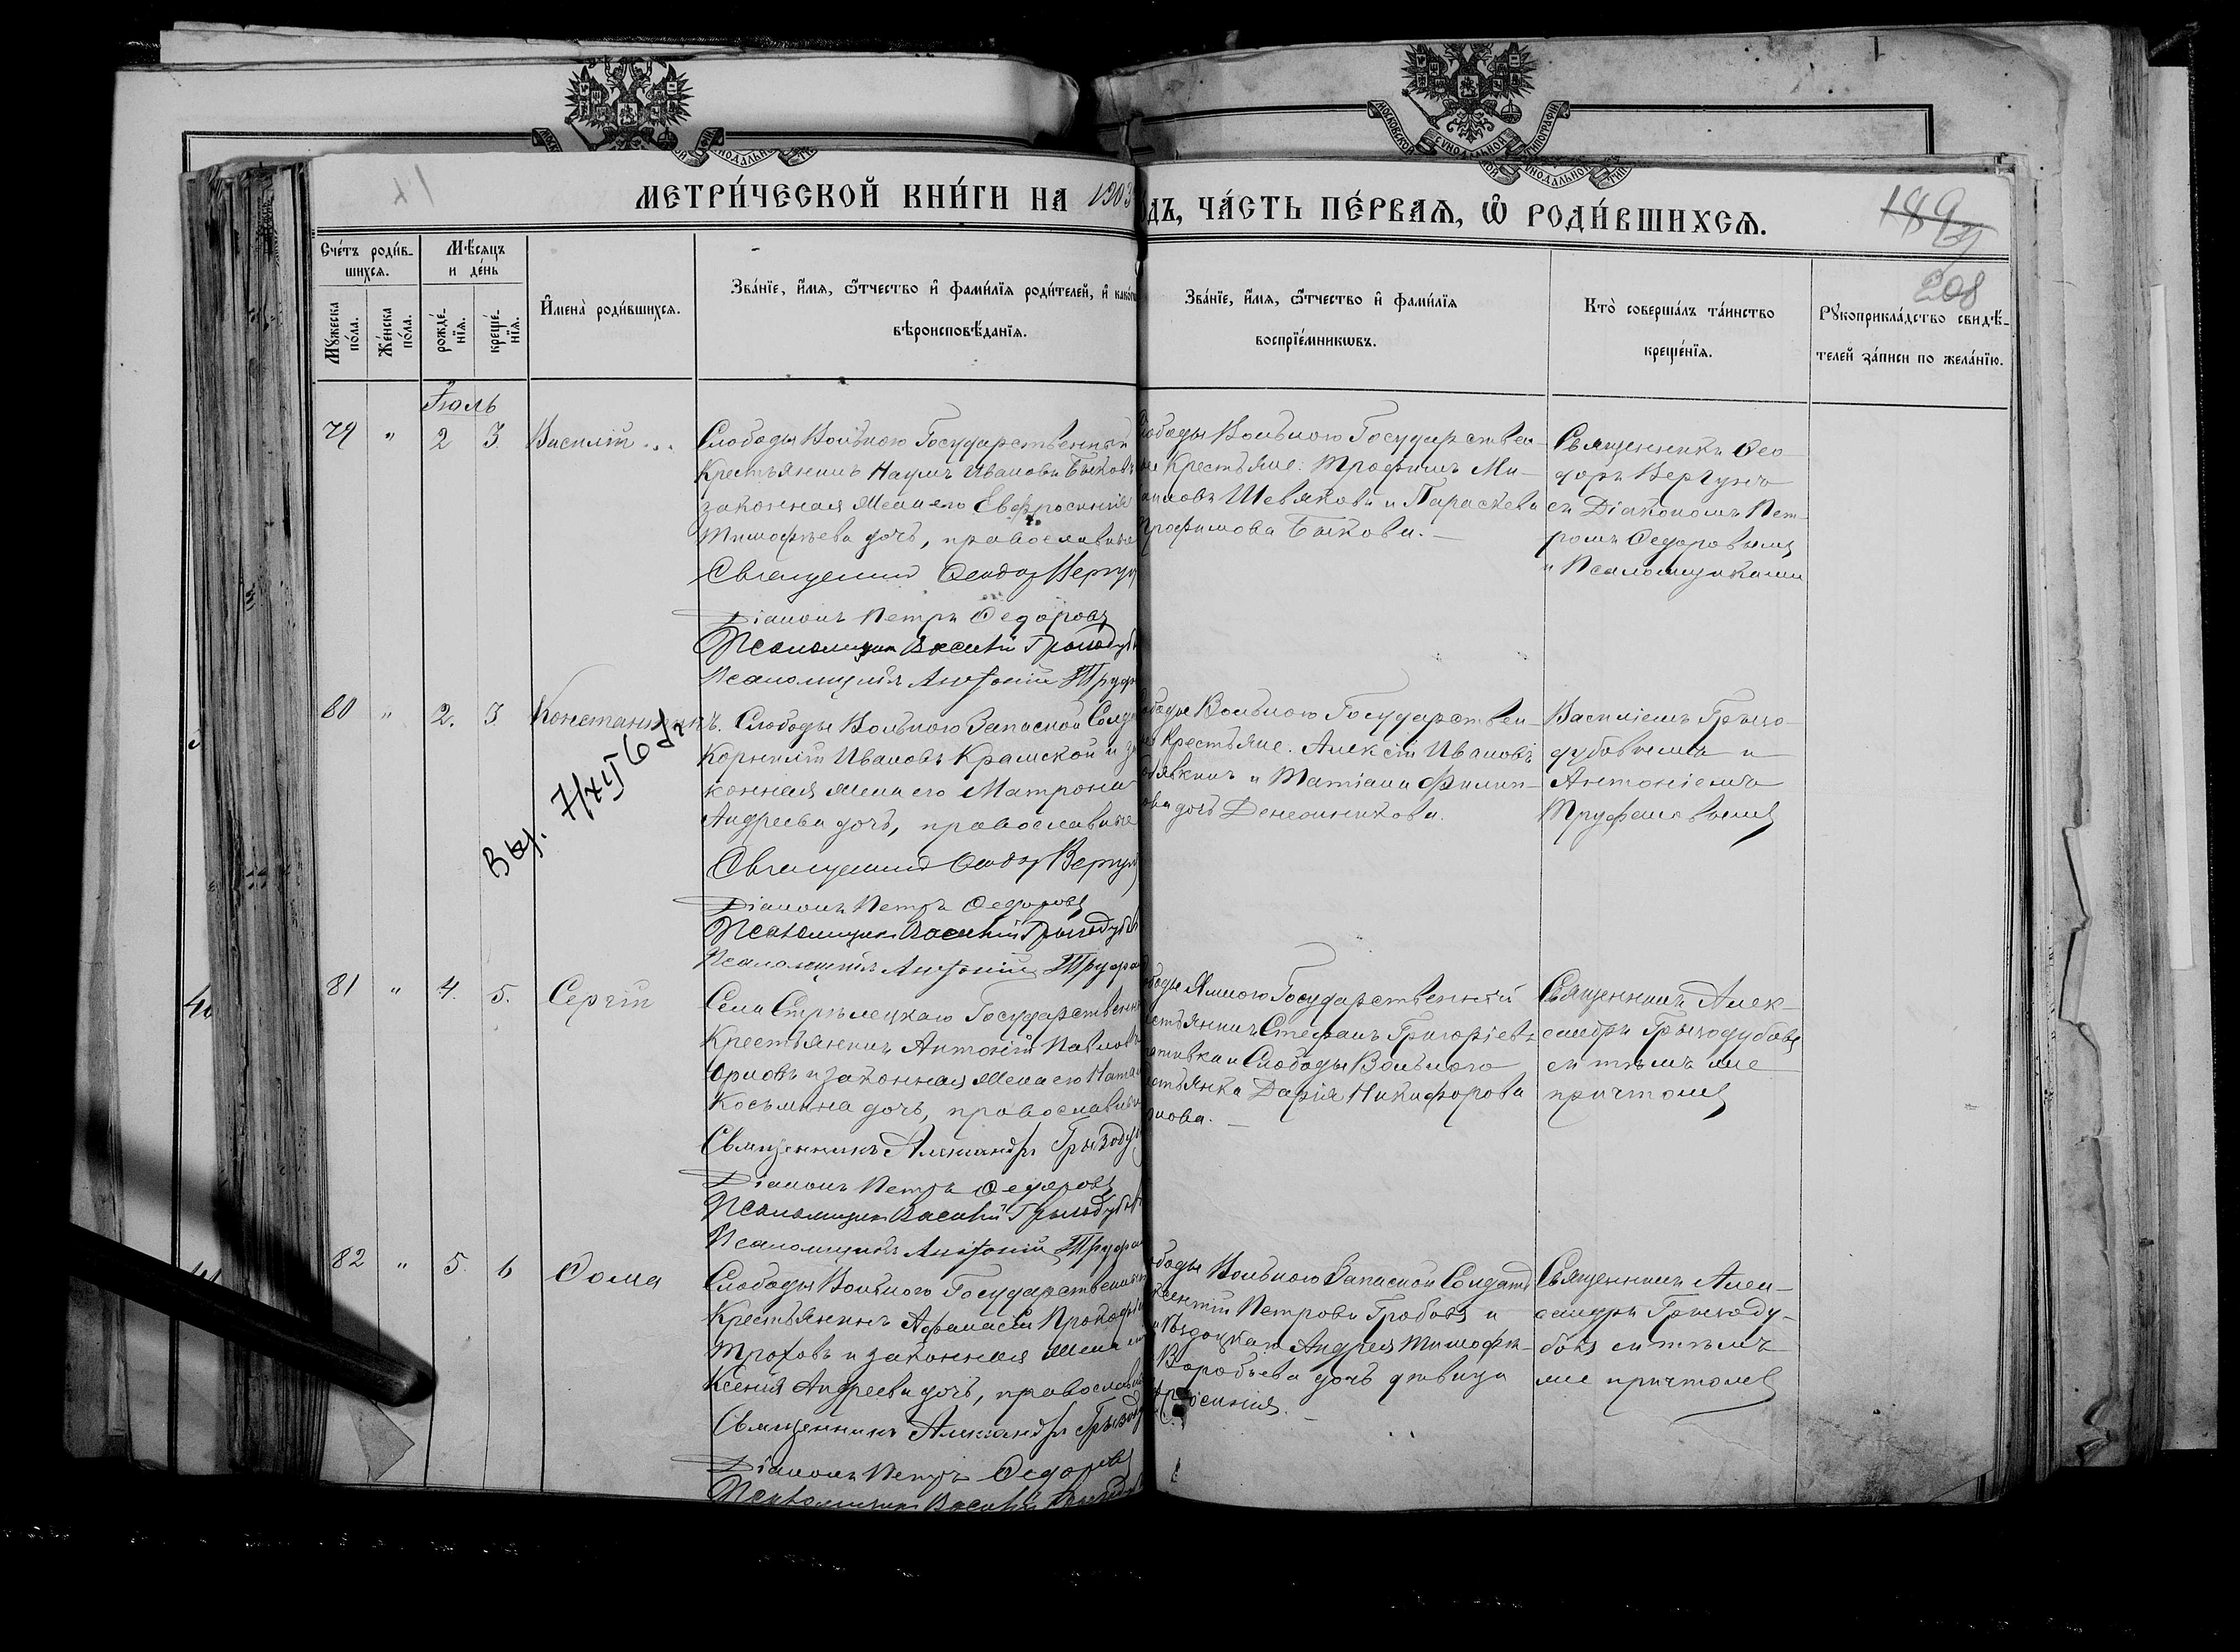 МЕТРИ́ЧЕСКОЙ КНИ́ГИ НА 1903
ДЪ, ЧА́СТЬ ПЕ́РВАѦ, Ѽ РОДИ́ВШИХСѦ.
189
208
Сче́тъ роди́в-
шихсѧ.
Мѣ́сѧцъ
и де́нь
Мꙋ́жеска
по́ла.
Же́нска
по́ла.
рожде́-
нїѧ.
креще́-
нїѧ.
И҆мена̀ роди́вшихсѧ.
Зва́нїе, и҆́мѧ, ѻ҆́тчество и҆ фами́лїѧ роди́телей, и҆ како́гѡ
вѣроисповѣ́данїѧ.
Зва́нїе, и҆́мѧ, ѻ҆́тчество и҆ фами́лїѧ
воспрїе́мникѡвъ.
Кто̀ соверша́лъ та́инство
креще́нїѧ.
Рꙋкоприкла́дство свидѣ́-
телей за́писи по жела́нїю.
Іюль
79 " 2 3. Василій
Слободы Вольного Государственный
Крестьянинъ Наумъ Ивановъ Быковъ
законная жена его Евфросинія
Тимофѣева дочь, православные
Священникъ Феодоръ Вергун
Діаконъ Петръ Федоровъ
Псаломщикъ Василій Грызодуб
Псаломщикъ Антоній Труф
ободы Вольного Государствен-
ые Крестьяне: Трофимъ Ми-
аиловъ Шевяковъ и Параскева
Трофимова Быкова.
Священникъ Фео-
доръ Вергунъ
съ Діакономъ Пет-
ромъ Федоровымъ
и Псаломщиками
80 " 2. 3 Константинъ.
Выд. 7/XII 6 г.
Слободы Вольного Запасной Солда
Корнилій Ивановъ Крамской и за
конная жена его Матрона
Андреева дочь, православные
Священникъ Феодоръ Вергун
Діаконъ Петръ Федоровъ
Псаломщикъ Василій Грызодуб
Псаломщикъ Антоній Труфа
ободы Вольного Государствен-
ые Крестьяне. Алексій Ивановъ
и Татіана Филип-
ова дочь
Василіемъ Грызо-
дубовымъ и
Антоніемъ
Труфановымъ
81 " 4. 5. Сергій
Села Стрѣлецкаго Государственный
Крестьянинъ Антоній Павловъ
Юрловъ и законная жена его Ната
Косьмина дочь, православные
Священникъ Александръ Грызоду
Діаконъ Петръ Федоровъ
Псаломщикъ Василій Грызодуб
Псаломщикъ Антоній Труфа
ободы Ямного Государственный
естьянинъ Стефанъ Григоріевъ
и Слободы Вольного
естьянка Дарія Никифорова
Священникъ Алек-
сандръ Грызодубовъ
съ тѣмъ же
причтомъ
82 " 5. 6 Фома
Слободы Вольного Государственный
Крестьянинъ Афанасій Прокофі
Троховъ и законная жена его
Ксенія Андреева дочь, православные
Священникъ Александръ Грызод
Діаконъ Петръ Федоровъ
Псаломщикъ Василій Грызодуб
ободы Вольного Запасной Солдатъ
Петровъ Гробовъ и
Андрея Тимофѣе-
Воробьева дочь дѣвица
Священникъ Алек-
сандръ Грызоду-
бовъ съ тѣмъ
же причтомъ